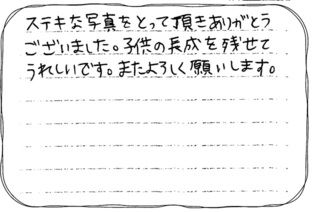 ステキな写真をとって頂きありがとう
ございました。子供の長成を残せて
うれしいです。またよろしく願いします。